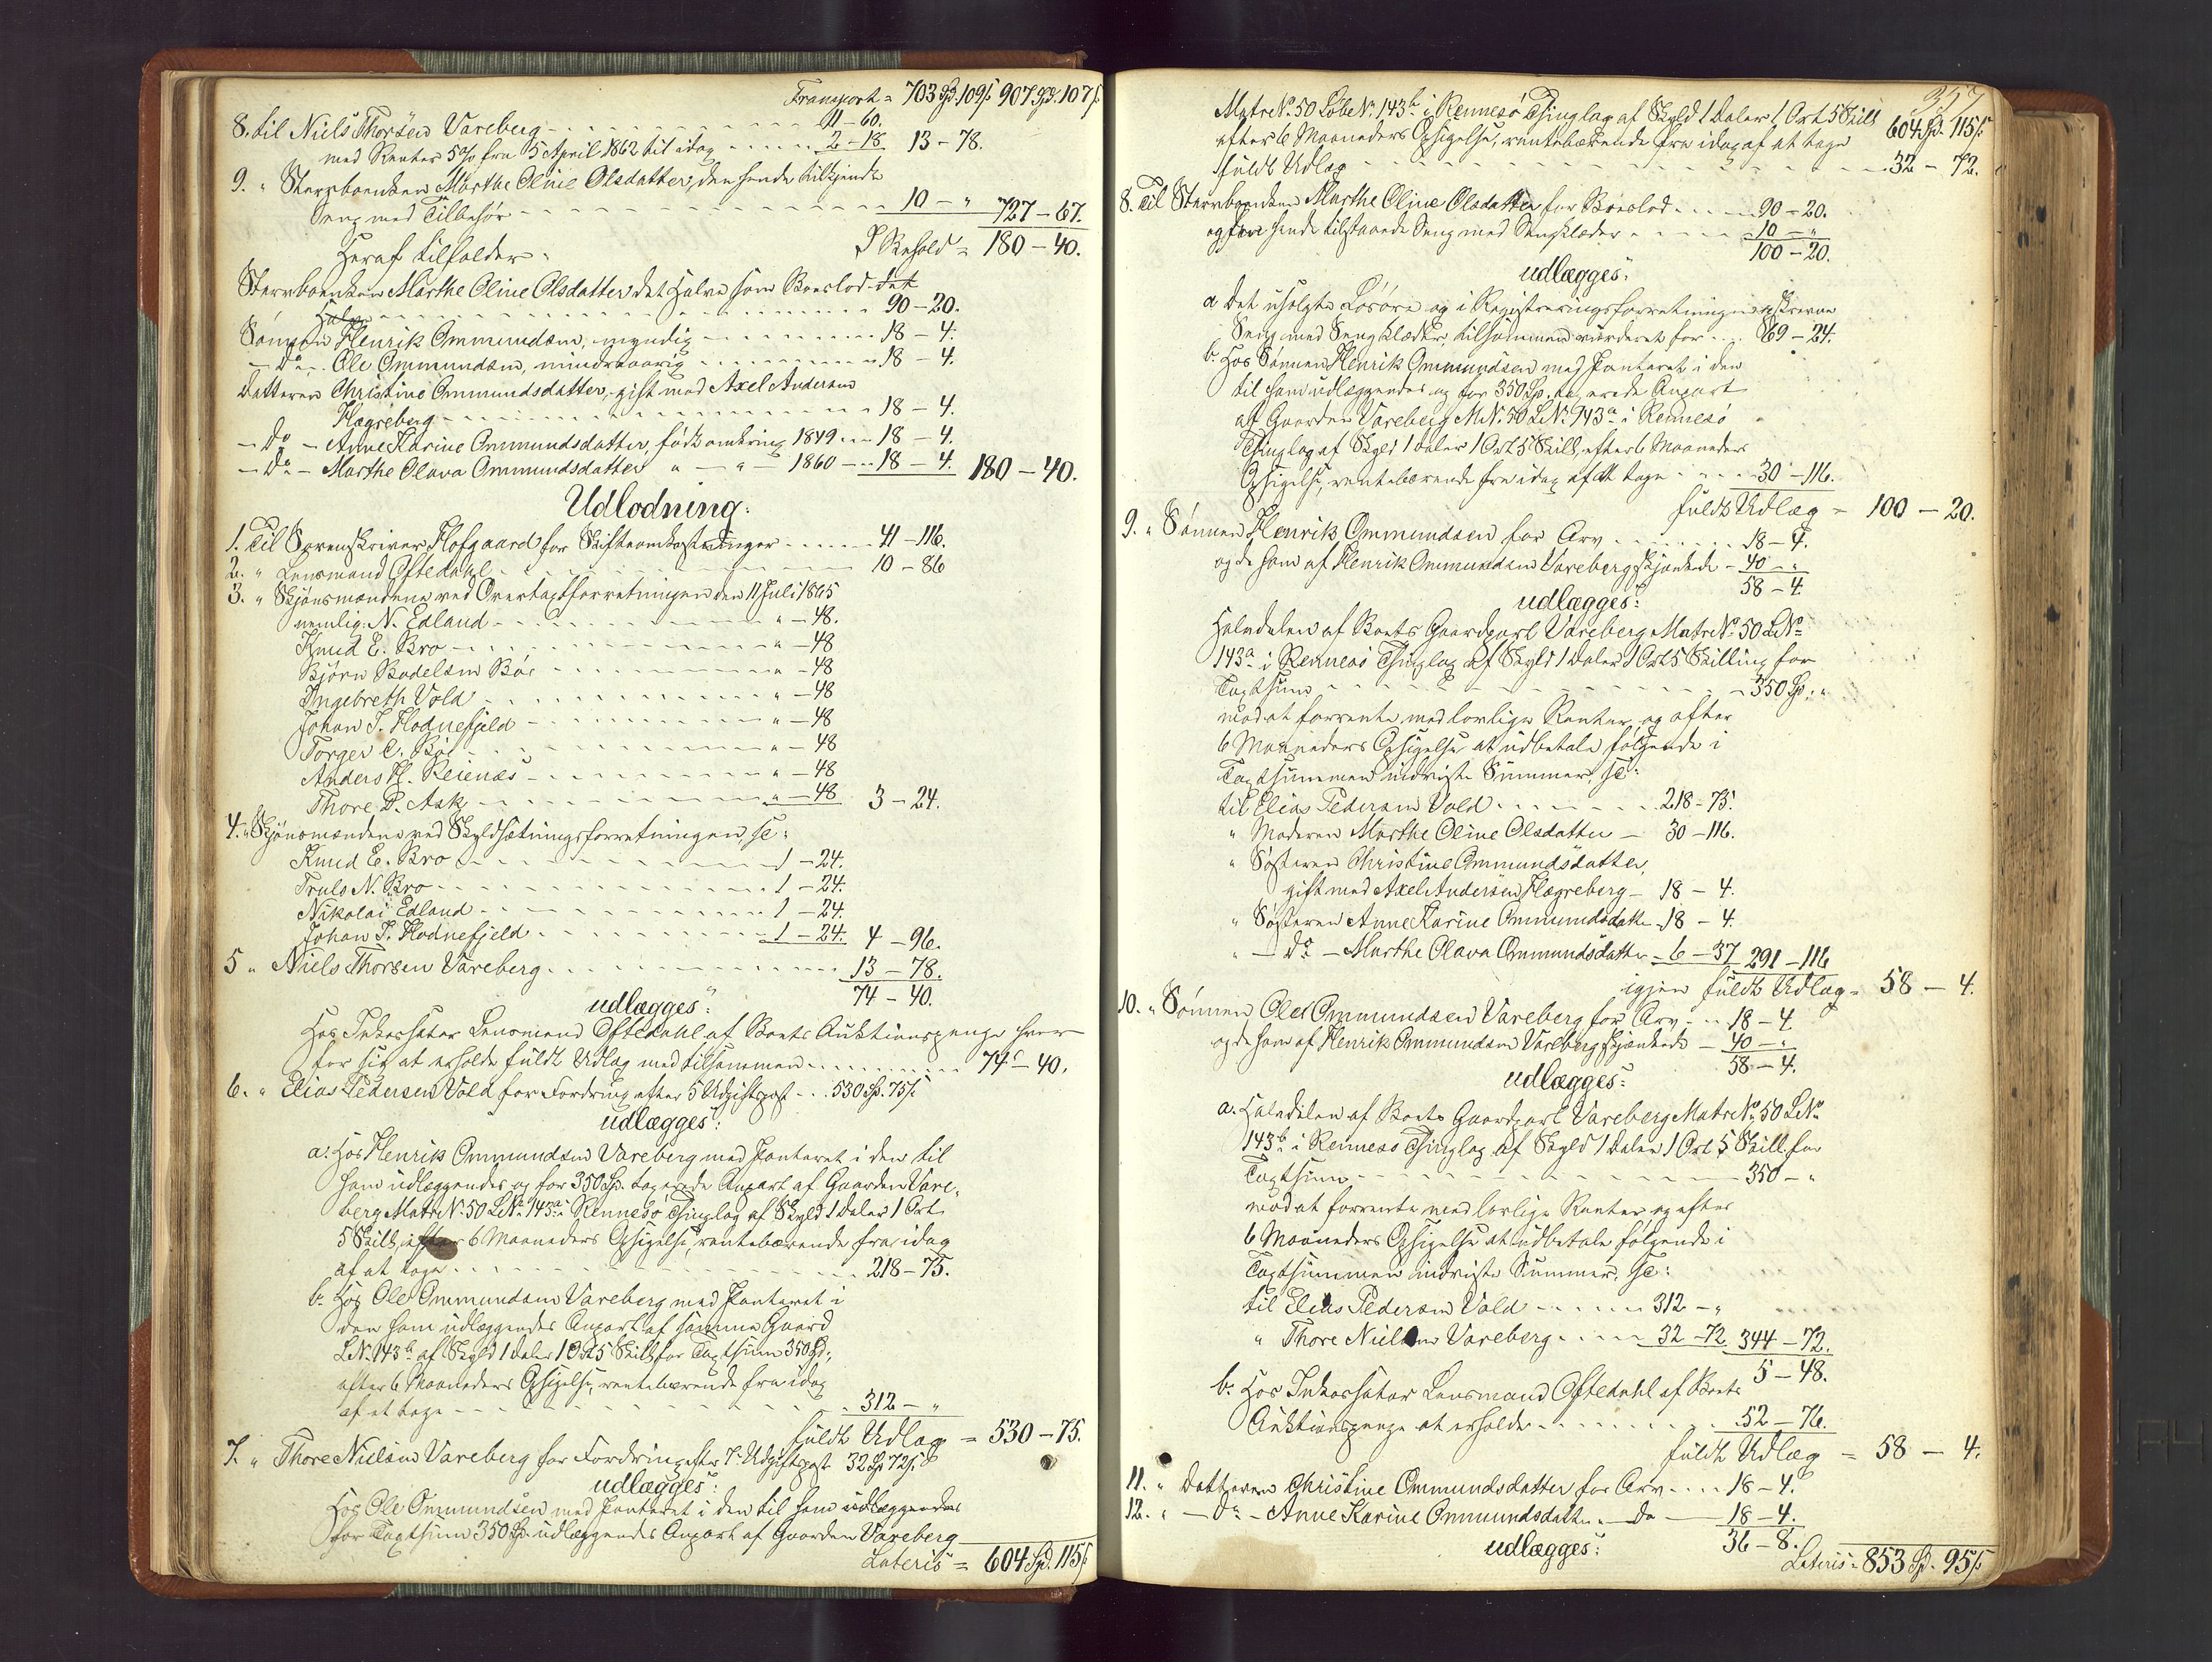 Transport = 703 Spd. 109 s. 907 Spd. 107 s.
8. til Niels Thorsen Vareberg - - - 11 - 60.
med Renter 5 % fra 5 April 1862 til idag - - - 2 - 18 13 - 78.
9. " Stervboenken Marthe Oline Olsdatter, den hende tilkjendte
Seng med Tilbehør - - - 10 - " 727 - 67.
I Behold = 180 - 40.
Heraf tilfalder:
Stervboenken Marthe Oline Olsdatter det Halve som Boeslod det
Halve - - - 90 - 20.
Sønnen Henrik Ommundsen, myndig - - - 18 - 4.
- Do - Ole Ommundsen, mindreaarig - - - 18 - 4.
Datteren Christine Ommundsdatter, gift med Axel Andersen
Hægreberg - - - 18 - 4.
- Do - Anne Karine Ommundsdatter, født omkring 1849 - - 18 - 4.
- Do - Marthe Olava Ommundsdatter " - " - 1860 - - 18 - 4. 180 - 40.
Udlodning:
1. Til Sorenskriver Hofgaard for Skifteomkostninger - - - 41 - 116.
2. " Lensmand Oftedahl - - - 10 - 86
3. " Skjønsmændene ved Overtaxtforretningen den 11 Juli 1865
nemlig: N. Edland - - - " - 48.
Knud E. Bro - - - " - 48
Bjørn Bodelsen Bøe - - - " - 48
Ingebreth Vold - - - " - 48
Johan S. Hodnefjeld - - - " - 48
Torger C. Bøe - - - " - 48
Anders H. Reienæs - - - " - 48
Thore P. Ask - - - " - 48 3 - 24.
4. " Skjønsmændene ved Skyldsætningsforretningen, sc:
Knud E. Bro - - - 1 - 24.
Truls N. Bro - - - 1 - 24.
Nikolai Edland - - - 1 - 24.
Johan S. Hodnefjeld - - - 1 - 24. 4 - 96.
5 " Niels Thorsen Vareberg - - - 13 - 78.
74 - 40.
udlægges:
Hos Inkassator Lensmand Oftedahl af Boets Auktionspenge hver
for sig at erholde fuldt Udlæg med tilsammen - - - 74 - 40.
6. " Elias Pedersen Vold for Fordring efter 5 Udgiftspost - - 530 Sp. 75 s.
udlægges:
a. Hos Henrik Ommundsen Vareberg med Panteret i den til
ham udlæggendes og for 350 Sp. taxerede Anpart af Gaarden Vare-
berg Matr No 50 L No 143a i Rennesø Thinglag af Skyld 1 Daler 1 Ort
5 Skill, efter 6 Maaneders Opsigelse, rentebærende fra idag
af at tage - - - 218 - 75.
b. Hos Ole Ommundsen Vareberg med Panteret i
den ham udlæggendes Anpart af samme Gaard
L No 143b af Skyld 1 Daler 1 Ort 5 Skill for Taxtsum 350 Sp.,
efter 6 Maaneders Opsigelse, rentebærende fra idag
af at tage - - - 312 - "
fuldt Udlæg = 530 - 75.
7. " Thore Nielsen Vareberg for Fordring efter 7. Udgiftspost 32 Sp. 72 s.
udlægges:
Hos Ole Ommundsen med Panteret i den til ham udlæggendes
for Taxtsum 350 Sp. udlæggendes Anpart af Gaarden Vareberg
Lateris = 604 Spd. 115 s.
357
Matr No 50 Løbe No 143b i Rennesø Thinglag af Skyld 1 Daler 1 Ort 5 Skill 604 Sp. 115 s.
efter 6 Maaneders Opsigelse, rentebærende fra idag af at tage
fuldt Udlæg - - - 32 - 72.
8. Til Stervboenken Marthe Oline Olsdatter for Boeslod - - - 90 - 20.
og for hende tilstaaede Seng med Sengklæder - - - 10 - "
100 - 20.
udlægges:
a Det usolgte Løsøre og i Registreringsforretningen opskrevne
Seng med Sengklæder, tilsammen vurderet for - - - 69 - 24.
b. Hos Sønnen Henrik Ommundsen med Panteret i den
til ham udlæggendes og for 350 Sp. taxerede Anpart
af Gaarden Vareberg M No 50 L No 143a i Rennesø
Thinglag af Skyld 1 Daler 1 Ort 5 Skill, efter 6 Maaneders
Opsigelse, rentebærende fra idag af at tage - - - 30 - 116.
fuldt Udlæg = 100 - 20.
9. " Sønnen Henrik Ommundsen for Arv - - - 18 - 4.
og de ham af Henrik Ommundsen Vareberg skjænkede - 40 - "
58 - 4.
udlægges:
Halvdelen af Boets Gaardpart Vareberg Matr No 50 L No
143a i Rennesø Thinglag af Skyld 1 Daler 1 Ort 5 Skilling for
Taxtsum - - - 350 Sp. "
mod at forrente med lovlige Renter og efter
6 Maaneders Opsigelse at udbetale følgende i
Taxtsummen indviste Summer, sc:
til Elias Pedersen Vold - - - 218 - 75.
" Moderen Marthe Oline Olsdatter - 30 - 116.
" Søsteren Christine Ommundsdatter,
gift med Axel Andersen Hægreberg - 18 - 4.
" Søsteren Anne Karine Ommundsdatter 18 - 4.
" - Do - Marthe Olava Ommundsdatter - 6 - 37 291 - 116
igjen fuldt Udlæg = 58 - 4.
10. " Sønnen Ole Ommundsen Vareberg for Arv - - 18 - 4
og de ham af Henrik Ommundsen Vareberg skjænkede - 40 - "
58 - 4.
udlægges:
a. Halvdelen af Boets Gaardpart Vareberg Matr No 50 L No
143b i Rennesø Thinglag af Skyld 1 Daler 1 Ort 5 Skill. for
Taxtsum - - - 350 - "
mod at forrente med lovlige Renter og efter
6 Maaneders Opsigelse at udbetale følgende i
Taxtsummen indviste Summer, sc:
til Elias Pedersen Vold - - - 312 - "
" Thore Nielsen Vareberg - - - 32 - 72 344 - 72.
5 - 48.
b. Hos Inkassator Lensmand Oftedahl af Boets
Auktionspenge at erholde - - - 52 - 76.
fuldt Udlæg = 58 - 4.
11. " Datteren Christine Ommundsdatter for Arv - - - 18 - 4.
12. " - Do - Anne Karine Ommundsdatter - Do - 18 - 4.
36 - 8.
udlægges:
Lateris = 853 Sp. 95 s.